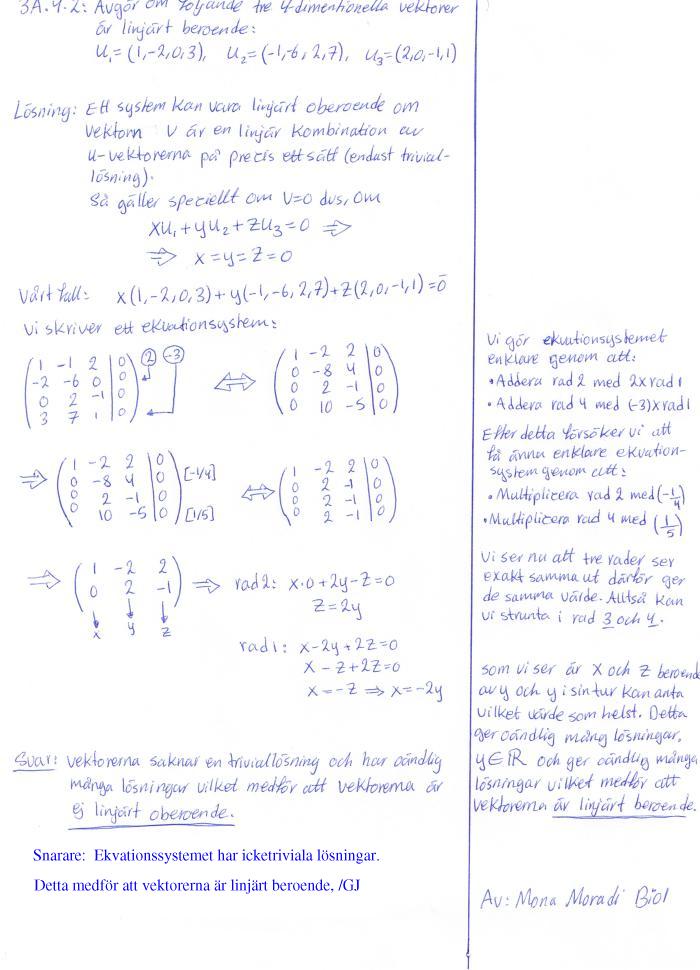 3A.4.2: Avgör om följande tre 4-dimentionella vektorer
är linjärt beroende:
U₁=(1,-2,0,3), U₂=(-1,-6,2,7), U₃=(2,0,-1,1)
Lösning: Ett system kan vara linjärt oberoende om
vektorn V är en linjär kombination av
u-vektorerna på precis ett sätt (endast trivial-
lösning).
Så gäller speciellt om V=0 dvs, om
xu₁+yu₂+zu₃=0 ⇒
⇒ x=y=z=0
Vårt fall: x(1,-2,0,3)+y(-1,-6,2,7)+z(2,0,-1,1)=0̄
Vi skriver ett ekvationsystem:
1 -1 2 | 0 (2) (-3)
-2 -6 0 | 0
0 2 -1 | 0
3 7 1 | 0
⇔
1 -2 2 | 0
0 -8 4 | 0
0 2 -1 | 0
0 10 -5 | 0
⇒
1 -2 2 | 0
0 -8 4 | 0 [-1/4]
0 2 -1 | 0
0 10 -5 | 0 [1/5]
⇔
1 -2 2 | 0
0 2 -1 | 0
0 2 -1 | 0
0 2 -1 | 0
⇒
1 -2 2
0 2 -1
x y z
⇒ rad2: x·0+2y-z=0
z=2y
rad1: x-2y+2z=0
x-z+2z=0
x=-z ⇒ x=-2y
Svar: vektorerna saknar en triviallösning och har oändlig
många lösningar vilket medför att vektorerna är
ej linjärt oberoende.
Snarare: Ekvationssystemet har icketriviala lösningar.
Detta medför att vektorerna är linjärt beroende, /GJ
Vi gör ekvationsystemet
enklare genom att:
• Addera rad 2 med 2x rad 1
• Addera rad 4 med (-3)x rad 1
Efter detta försöker vi att
få ännu enklare ekvation-
system genom att:
• Multiplicera rad 2 med (-1/4)
• Multiplicera rad 4 med (1/5)
Vi ser nu att tre rader ser
exakt samma ut därför ger
de samma värde. Alltså kan
vi strunta i rad 3 och 4.
som vi ser är X och Z beroende
av y och y i sin tur kan anta
vilket värde som helst. Detta
ger oändlig mång lösningar,
y∈ℝ och ger oändlig många
lösningar vilket medför att
vektorerna är linjärt beroende.
Av: Mona Moradi Biol